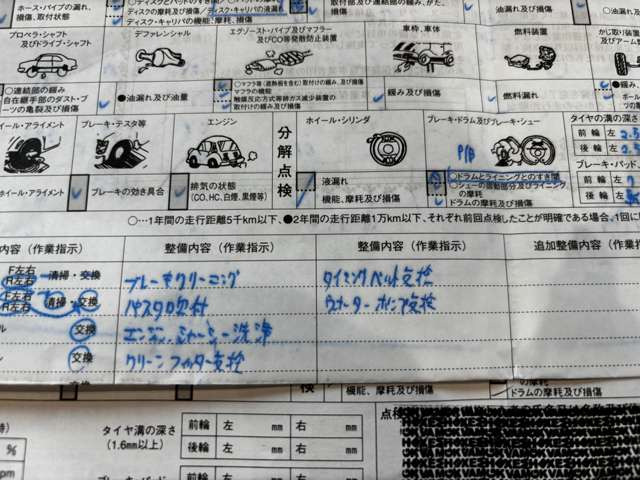 ホース・パイプの漏れ、
損傷、取付状態
ディスクの摩耗及び損傷/ディスク・キャリパの漏れ
ディスク・キャリパの機能、摩耗、損傷
取付部及び連結部の緩み、がた、
損傷
油漏れ及び損傷
プロペラ・シャフト
及びドライブ・シャフト
デファレンシャル
エグゾースト・パイプ及びマフラー
及びCO等発散防止装置
車枠、車体
燃料装置
○連結部の緩み
自在継手部のダスト・ブ
ーツの亀裂及び損傷
●油漏れ及び油量
○マフラ等(遮熱板を含む)取付けの緩み、及び損傷
マフラの機能
触媒反応方式等排ガス減少装置の
取付けの緩み及び損傷
緩み及び損傷
燃料漏れ
イール・アライメント
ブレーキ・テスタ等
エンジン
分解点検
ホイール・シリンダ
ブレーキ・ドラム及びブレーキ・シュー
P/B
タイヤの溝の深さ
前輪 左
後輪 左
ブレーキ・パッド、
前輪 左
後輪 左
ホイール・アライメント
ブレーキの効き具合
排気の状態
(CO、HC、白煙、黒煙等)
液漏れ
機能、摩耗及び損傷
○ドラムとライニングとのすき間
○シューの摺動部分及びライニング
の摩耗
ドラムの摩耗及び損傷
○…1年間の走行距離5千km以下、●2年間の走行距離1万km以下、それぞれ前回点検したことが明確である場合、1回に
内容(作業指示)
整備内容(作業指示)
整備内容(作業指示)
追加整備内容(作
F左右
R左右
清掃・交換
ブレーキクリーニング
タイミングベルト交換
F左右
R左右
清掃・交換
パスタ吹付
ウオーターポンプ交換
交換
エンジン、シャーシー洗浄
交換
クリーンフィルター交換
機能、摩耗及び損傷
の摩耗
ドラムの摩耗及び損傷
タイヤ溝の深さ
(1.6mm以上)
前輪 左 mm 右 mm
後輪 左 mm 右 mm
%
点検